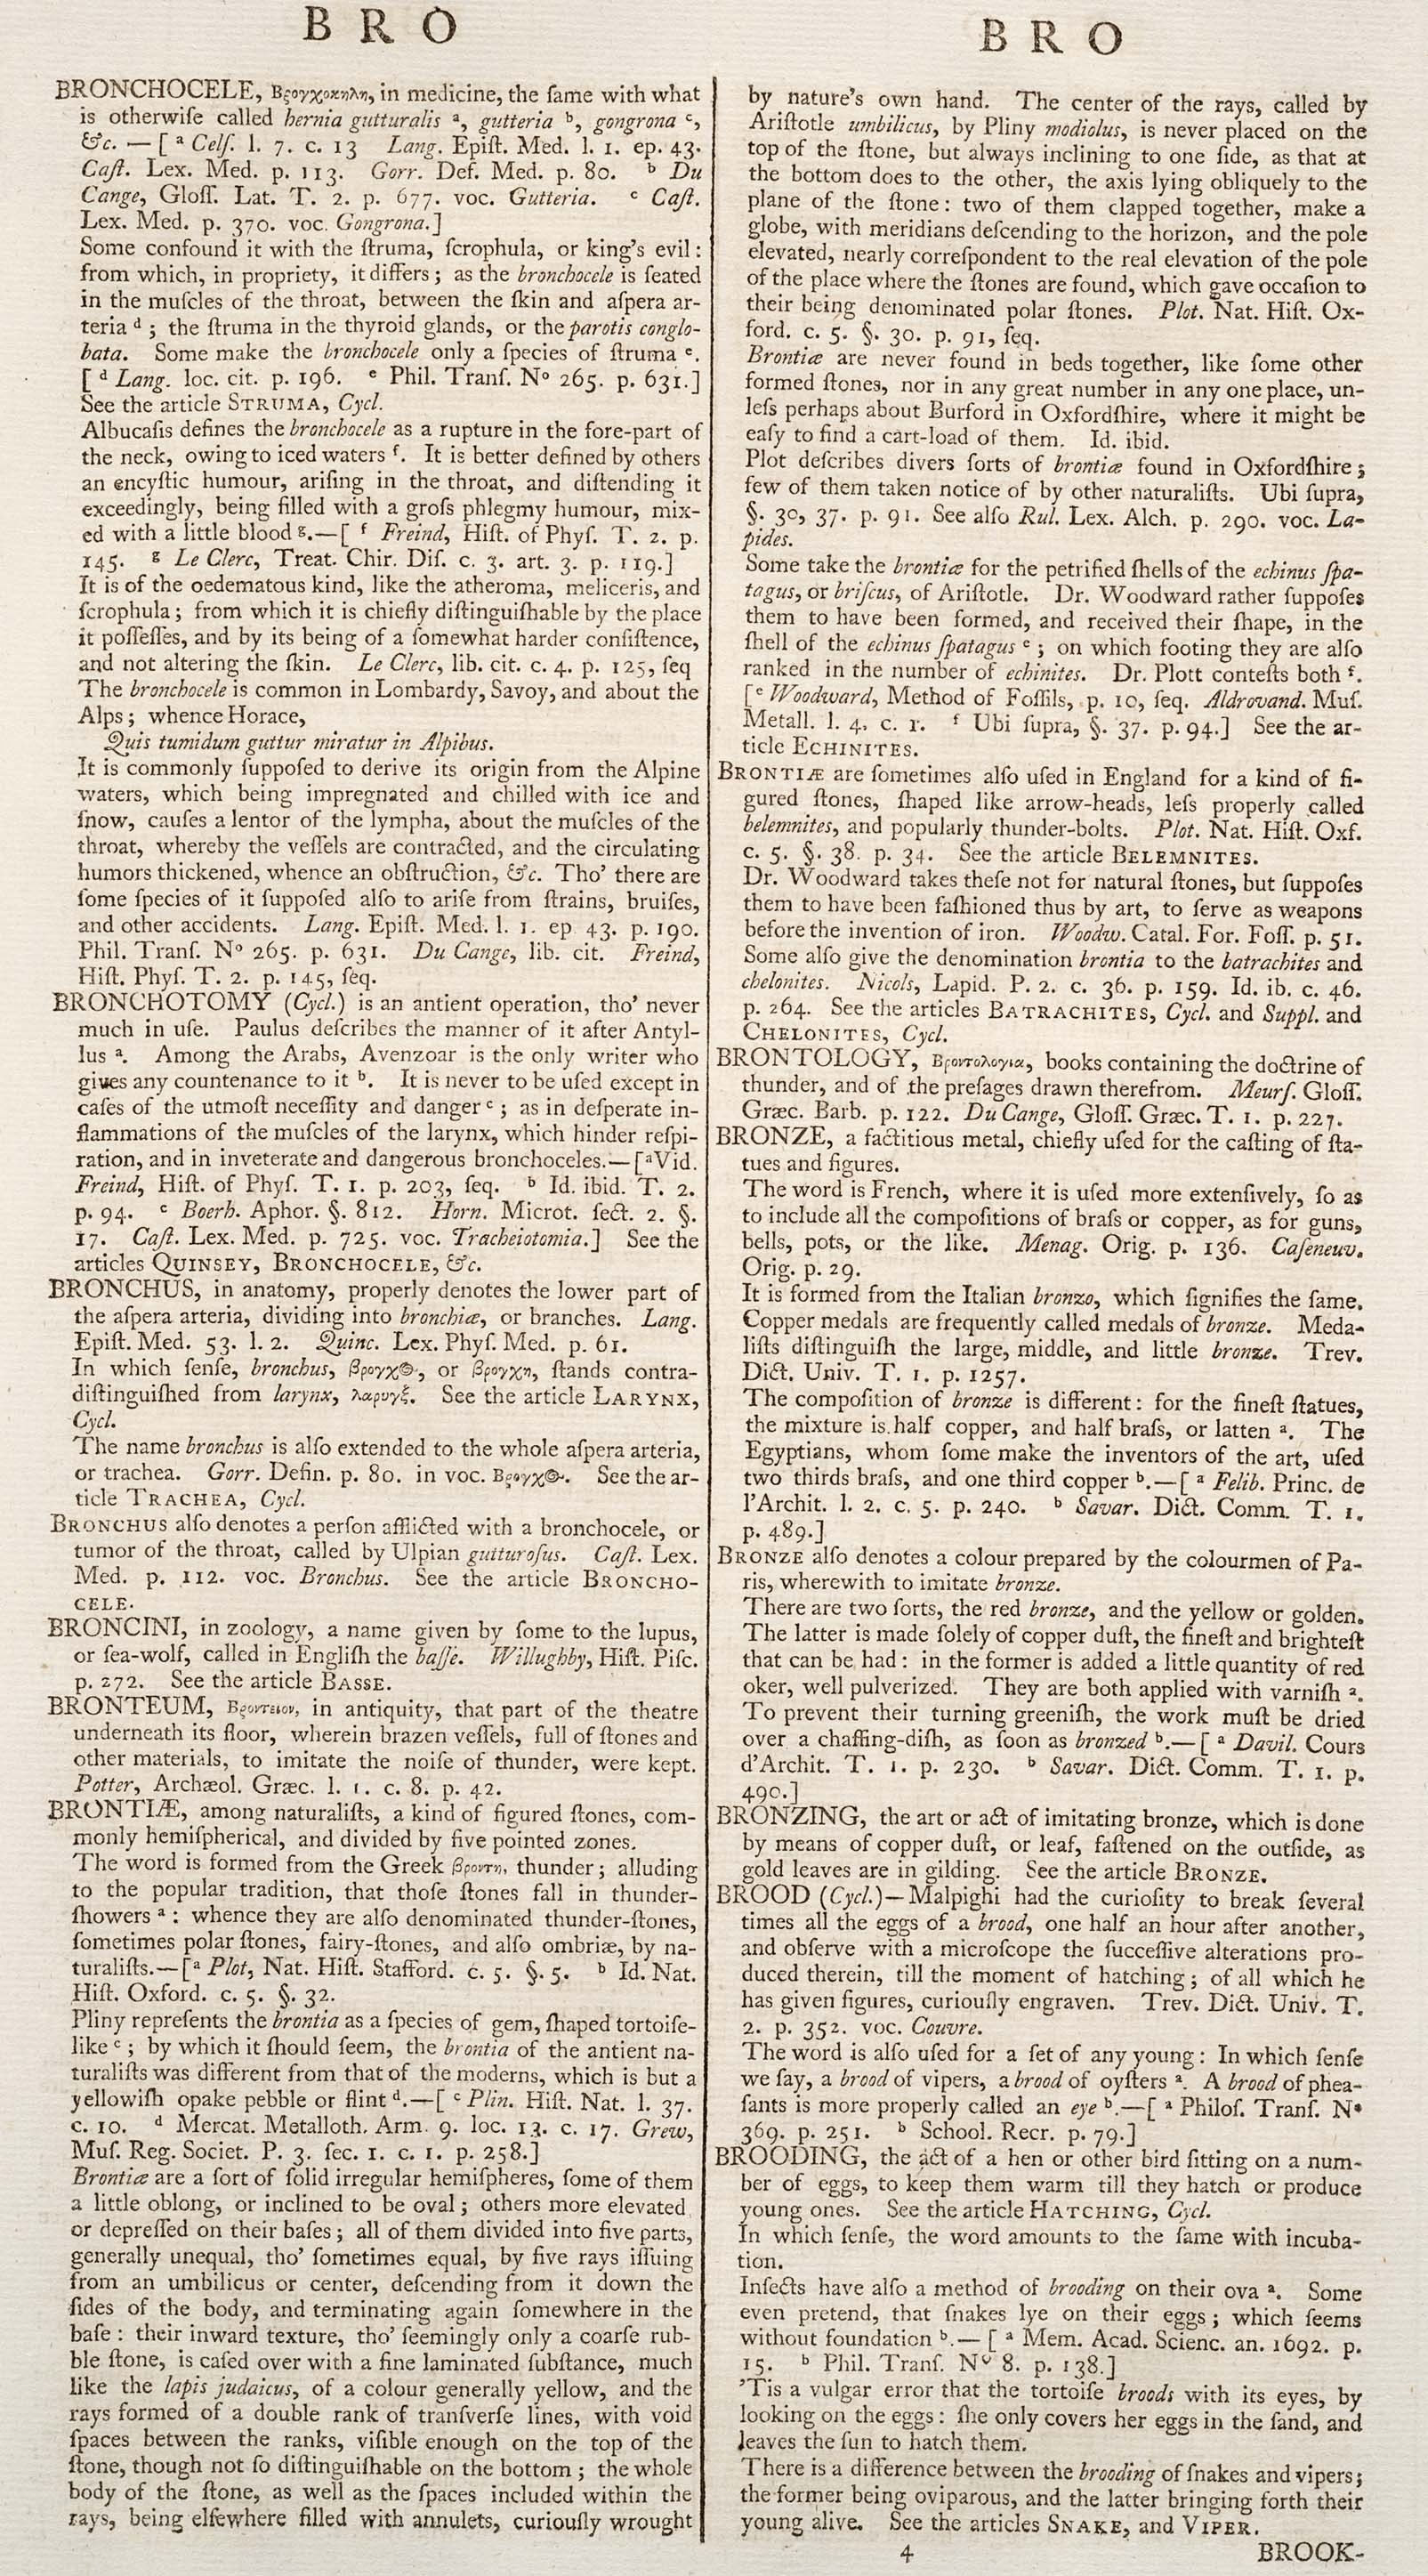 B R O
BRONCHOCELE, Βρογχοκηλη, in medicine, the ſame with what
is otherwiſe called hernia gutturalis ª, gutteria ᵇ, gongrona ᶜ,
&c. — [ ª Celſ. l. 7. c. 13 Lang. Epiſt. Med. l. 1. ep. 43.
Caſt. Lex. Med. p. 113. Gorr. Def. Med. p. 80. ᵇ Du
Cange, Gloſſ. Lat. T. 2. p. 677. voc. Gutteria. ᶜ Caſt.
Lex. Med. p. 370. voc. Gongrona.]
Some confound it with the ſtruma, ſcrophula, or king's evil :
from which, in propriety, it differs ; as the bronchocele is ſeated
in the muſcles of the throat, between the ſkin and aſpera ar-
teria ᵈ ; the ſtruma in the thyroid glands, or the parotis conglo-
bata. Some make the bronchocele only a ſpecies of ſtruma ᵉ.
[ ᵈ Lang. loc. cit. p. 196. ᵉ Phil. Tranſ. Nº 265. p. 631.]
See the article STRUMA, Cycl.
Albucaſis defines the bronchocele as a rupture in the fore-part of
the neck, owing to iced waters ᶠ. It is better defined by others
an encyſtic humour, ariſing in the throat, and diſtending it
exceedingly, being filled with a groſs phlegmy humour, mix-
ed with a little blood ᵍ.—[ ᶠ Freind, Hiſt. of Phyſ. T. 2. p.
145. ᵍ Le Clerc, Treat. Chir. Diſ. c. 3. art. 3. p. 119.]
It is of the oedematous kind, like the atheroma, meliceris, and
ſcrophula ; from which it is chiefly diſtinguiſhable by the place
it poſſeſſes, and by its being of a ſomewhat harder conſiſtence,
and not altering the ſkin. Le Clerc, lib. cit. c. 4. p. 125, ſeq
The bronchocele is common in Lombardy, Savoy, and about the
Alps ; whence Horace,
Quis tumidum guttur miratur in Alpibus.
It is commonly ſuppoſed to derive its origin from the Alpine
waters, which being impregnated and chilled with ice and
ſnow, cauſes a lentor of the lympha, about the muſcles of the
throat, whereby the veſſels are contracted, and the circulating
humors thickened, whence an obſtruction, &c. Tho' there are
ſome ſpecies of it ſuppoſed alſo to ariſe from ſtrains, bruiſes,
and other accidents. Lang. Epiſt. Med. l. 1. ep. 43. p. 190.
Phil. Tranſ. Nº 265. p. 631. Du Cange, lib. cit. Freind,
Hiſt. Phyſ. T. 2. p. 145, ſeq.
BRONCHOTOMY (Cycl.) is an antient operation, tho' never
much in uſe. Paulus deſcribes the manner of it after Antyl-
lus ª. Among the Arabs, Avenzoar is the only writer who
gives any countenance to it ᵇ. It is never to be uſed except in
caſes of the utmoſt neceſſity and danger ᶜ ; as in deſperate in-
flammations of the muſcles of the larynx, which hinder reſpi-
ration, and in inveterate and dangerous bronchoceles.—[ªVid.
Freind, Hiſt. of Phyſ. T. 1. p. 203, ſeq. ᵇ Id. ibid. T. 2.
p. 94. ᶜ Boerh. Aphor. §. 812. Horn. Microt. ſect. 2. §.
17. Caſt. Lex. Med. p. 725. voc. Tracheiotomia.] See the
articles QUINSEY, BRONCHOCELE, &c.
BRONCHUS, in anatomy, properly denotes the lower part of
the aſpera arteria, dividing into bronchiæ, or branches. Lang.
Epiſt. Med. 53. l. 2. Quinc. Lex. Phyſ. Med. p. 61.
In which ſenſe, bronchus, βρογχος, or βρογχη, ſtands contra-
diſtinguiſhed from larynx, λαρυγξ. See the article LARYNX,
Cycl.
The name bronchus is alſo extended to the whole aſpera arteria,
or trachea. Gorr. Defin. p. 80. in voc. Βρογχος. See the ar-
ticle TRACHEA, Cycl.
BRONCHUS alſo denotes a perſon afflicted with a bronchocele, or
tumor of the throat, called by Ulpian gutturoſus. Caſt. Lex.
Med. p. 112. voc. Bronchus. See the article BRONCHO-
CELE.
BRONCINI, in zoology, a name given by ſome to the lupus,
or ſea-wolf, called in Engliſh the baſſe. Willughby, Hiſt. Piſc.
p. 272. See the article BASSE.
BRONTEUM, Βροντειον, in antiquity, that part of the theatre
underneath its floor, wherein brazen veſſels, full of ſtones and
other materials, to imitate the noiſe of thunder, were kept.
Potter, Archæol. Græc. l. 1. c. 8. p. 42.
BRONTIÆ, among naturaliſts, a kind of figured ſtones, com-
monly hemiſpherical, and divided by five pointed zones.
The word is formed from the Greek βροντη, thunder ; alluding
to the popular tradition, that thoſe ſtones fall in thunder-
ſhowers ª : whence they are alſo denominated thunder-ſtones,
ſometimes polar ſtones, fairy-ſtones, and alſo ombriæ, by na-
turaliſts.—[ª Plot, Nat. Hiſt. Stafford. c. 5. §. 5. ᵇ Id. Nat.
Hiſt. Oxford. c. 5. §. 32.
Pliny repreſents the brontia as a ſpecies of gem, ſhaped tortoiſe-
like ᶜ ; by which it ſhould ſeem, the brontia of the antient na-
turaliſts was different from that of the moderns, which is but a
yellowiſh opake pebble or flint ᵈ.—[ ᶜ Plin. Hiſt. Nat. l. 37.
c. 10. ᵈ Mercat. Metalloth. Arm. 9. loc. 13. c. 17. Grew,
Muſ. Reg. Societ. P. 3. ſec. 1. c. 1. p. 258.]
Brontiæ are a ſort of ſolid irregular hemiſpheres, ſome of them
a little oblong, or inclined to be oval ; others more elevated
or depreſſed on their baſes ; all of them divided into five parts,
generally unequal, tho' ſometimes equal, by five rays iſſuing
from an umbilicus or center, deſcending from it down the
ſides of the body, and terminating again ſomewhere in the
baſe : their inward texture, tho' ſeemingly only a coarſe rub-
ble ſtone, is caſed over with a fine laminated ſubſtance, much
like the lapis judaicus, of a colour generally yellow, and the
rays formed of a double rank of tranſverſe lines, with void
ſpaces between the ranks, viſible enough on the top of the
ſtone, though not ſo diſtinguiſhable on the bottom ; the whole
body of the ſtone, as well as the ſpaces included within the
rays, being elſewhere filled with annulets, curiouſly wrought
B R O
by nature's own hand. The center of the rays, called by
Ariſtotle umbilicus, by Pliny modiolus, is never placed on the
top of the ſtone, but always inclining to one ſide, as that at
the bottom does to the other, the axis lying obliquely to the
plane of the ſtone : two of them clapped together, make a
globe, with meridians deſcending to the horizon, and the pole
elevated, nearly correſpondent to the real elevation of the pole
of the place where the ſtones are found, which gave occaſion to
their being denominated polar ſtones. Plot. Nat. Hiſt. Ox-
ford. c. 5. §. 30. p. 91, ſeq.
Brontiæ are never found in beds together, like ſome other
formed ſtones, nor in any great number in any one place, un-
leſs perhaps about Burford in Oxfordſhire, where it might be
eaſy to find a cart-load of them. Id. ibid.
Plot deſcribes divers ſorts of brontiæ found in Oxfordſhire ;
few of them taken notice of by other naturaliſts. Ubi ſupra,
§. 30, 37. p. 91. See alſo Rul. Lex. Alch. p. 290. voc. La-
pides.
Some take the brontiæ for the petrified ſhells of the echinus ſpa-
tagus, or briſcus, of Ariſtotle. Dr. Woodward rather ſuppoſes
them to have been formed, and received their ſhape, in the
ſhell of the echinus ſpatagus ᵉ ; on which footing they are alſo
ranked in the number of echinites. Dr. Plott conteſts both ᶠ.
[ᵉ Woodward, Method of Foſſils, p. 10, ſeq. Aldrovand. Muſ.
Metall. l. 4. c. 1. ᶠ Ubi ſupra, §. 37. p. 94.] See the ar-
ticle ECHINITES.
BRONTIÆ are ſometimes alſo uſed in England for a kind of fi-
gured ſtones, ſhaped like arrow-heads, leſs properly called
belemnites, and popularly thunder-bolts. Plot. Nat. Hiſt. Oxf.
c. 5. §. 38. p. 34. See the article BELEMNITES.
Dr. Woodward takes theſe not for natural ſtones, but ſuppoſes
them to have been faſhioned thus by art, to ſerve as weapons
before the invention of iron. Woodw. Catal. For. Foſſ. p. 51.
Some alſo give the denomination brontia to the batrachites and
chelonites. Nicols, Lapid. P. 2. c. 36. p. 159. Id. ib. c. 46.
p. 264. See the articles BATRACHITES, Cycl. and Suppl. and
CHELONITES, Cycl.
BRONTOLOGY, Βροντολογια, books containing the doctrine of
thunder, and of the preſages drawn therefrom. Meurſ. Gloſſ.
Græc. Barb. p. 122. Du Cange, Gloſſ. Græc. T. 1. p. 227.
BRONZE, a factitious metal, chiefly uſed for the caſting of ſta-
tues and figures.
The word is French, where it is uſed more extenſively, ſo as
to include all the compoſitions of braſs or copper, as for guns,
bells, pots, or the like. Menag. Orig. p. 136. Caſeneuv.
Orig. p. 29.
It is formed from the Italian bronzo, which ſignifies the ſame.
Copper medals are frequently called medals of bronze. Meda-
liſts diſtinguiſh the large, middle, and little bronze. Trev.
Dict. Univ. T. 1. p. 1257.
The compoſition of bronze is different : for the fineſt ſtatues,
the mixture is half copper, and half braſs, or latten ª. The
Egyptians, whom ſome make the inventors of the art, uſed
two thirds braſs, and one third copper ᵇ.—[ ª Felib. Princ. de
l'Archit. l. 2. c. 5. p. 240. ᵇ Savar. Dict. Comm. T. 1.
p. 489.]
BRONZE alſo denotes a colour prepared by the colourmen of Pa-
ris, wherewith to imitate bronze.
There are two ſorts, the red bronze, and the yellow or golden.
The latter is made ſolely of copper duſt, the fineſt and brighteſt
that can be had : in the former is added a little quantity of red
oker, well pulverized. They are both applied with varniſh ª.
To prevent their turning greeniſh, the work muſt be dried
over a chaffing-diſh, as ſoon as bronzed ᵇ.—[ ª Davil. Cours
d'Archit. T. 1. p. 230. ᵇ Savar. Dict. Comm. T. 1. p.
490.]
BRONZING, the art or act of imitating bronze, which is done
by means of copper duſt, or leaf, faſtened on the outſide, as
gold leaves are in gilding. See the article BRONZE.
BROOD (Cycl.)—Malpighi had the curioſity to break ſeveral
times all the eggs of a brood, one half an hour after another,
and obſerve with a microſcope the ſucceſſive alterations pro-
duced therein, till the moment of hatching ; of all which he
has given figures, curiouſly engraven. Trev. Dict. Univ. T.
2. p. 352. voc. Couvre.
The word is alſo uſed for a ſet of any young : In which ſenſe
we ſay, a brood of vipers, a brood of oyſters ª. A brood of phea-
ſants is more properly called an eye ᵇ.—[ ª Philoſ. Tranſ. Nº
369. p. 251. ᵇ School. Recr. p. 79.]
BROODING, the act of a hen or other bird ſitting on a num-
ber of eggs, to keep them warm till they hatch or produce
young ones. See the article HATCHING, Cycl.
In which ſenſe, the word amounts to the ſame with incuba-
tion.
Inſects have alſo a method of brooding on their ova ª. Some
even pretend, that ſnakes lye on their eggs ; which ſeems
without foundation ᵇ.— [ ª Mem. Acad. Scienc. an. 1692. p.
15. ᵇ Phil. Tranſ. Nº 8. p. 138.]
'Tis a vulgar error that the tortoiſe broods with its eyes, by
looking on the eggs : ſhe only covers her eggs in the ſand, and
leaves the ſun to hatch them.
There is a difference between the brooding of ſnakes and vipers ;
the former being oviparous, and the latter bringing forth their
young alive. See the articles SNAKE, and VIPER.
4 BROOK-